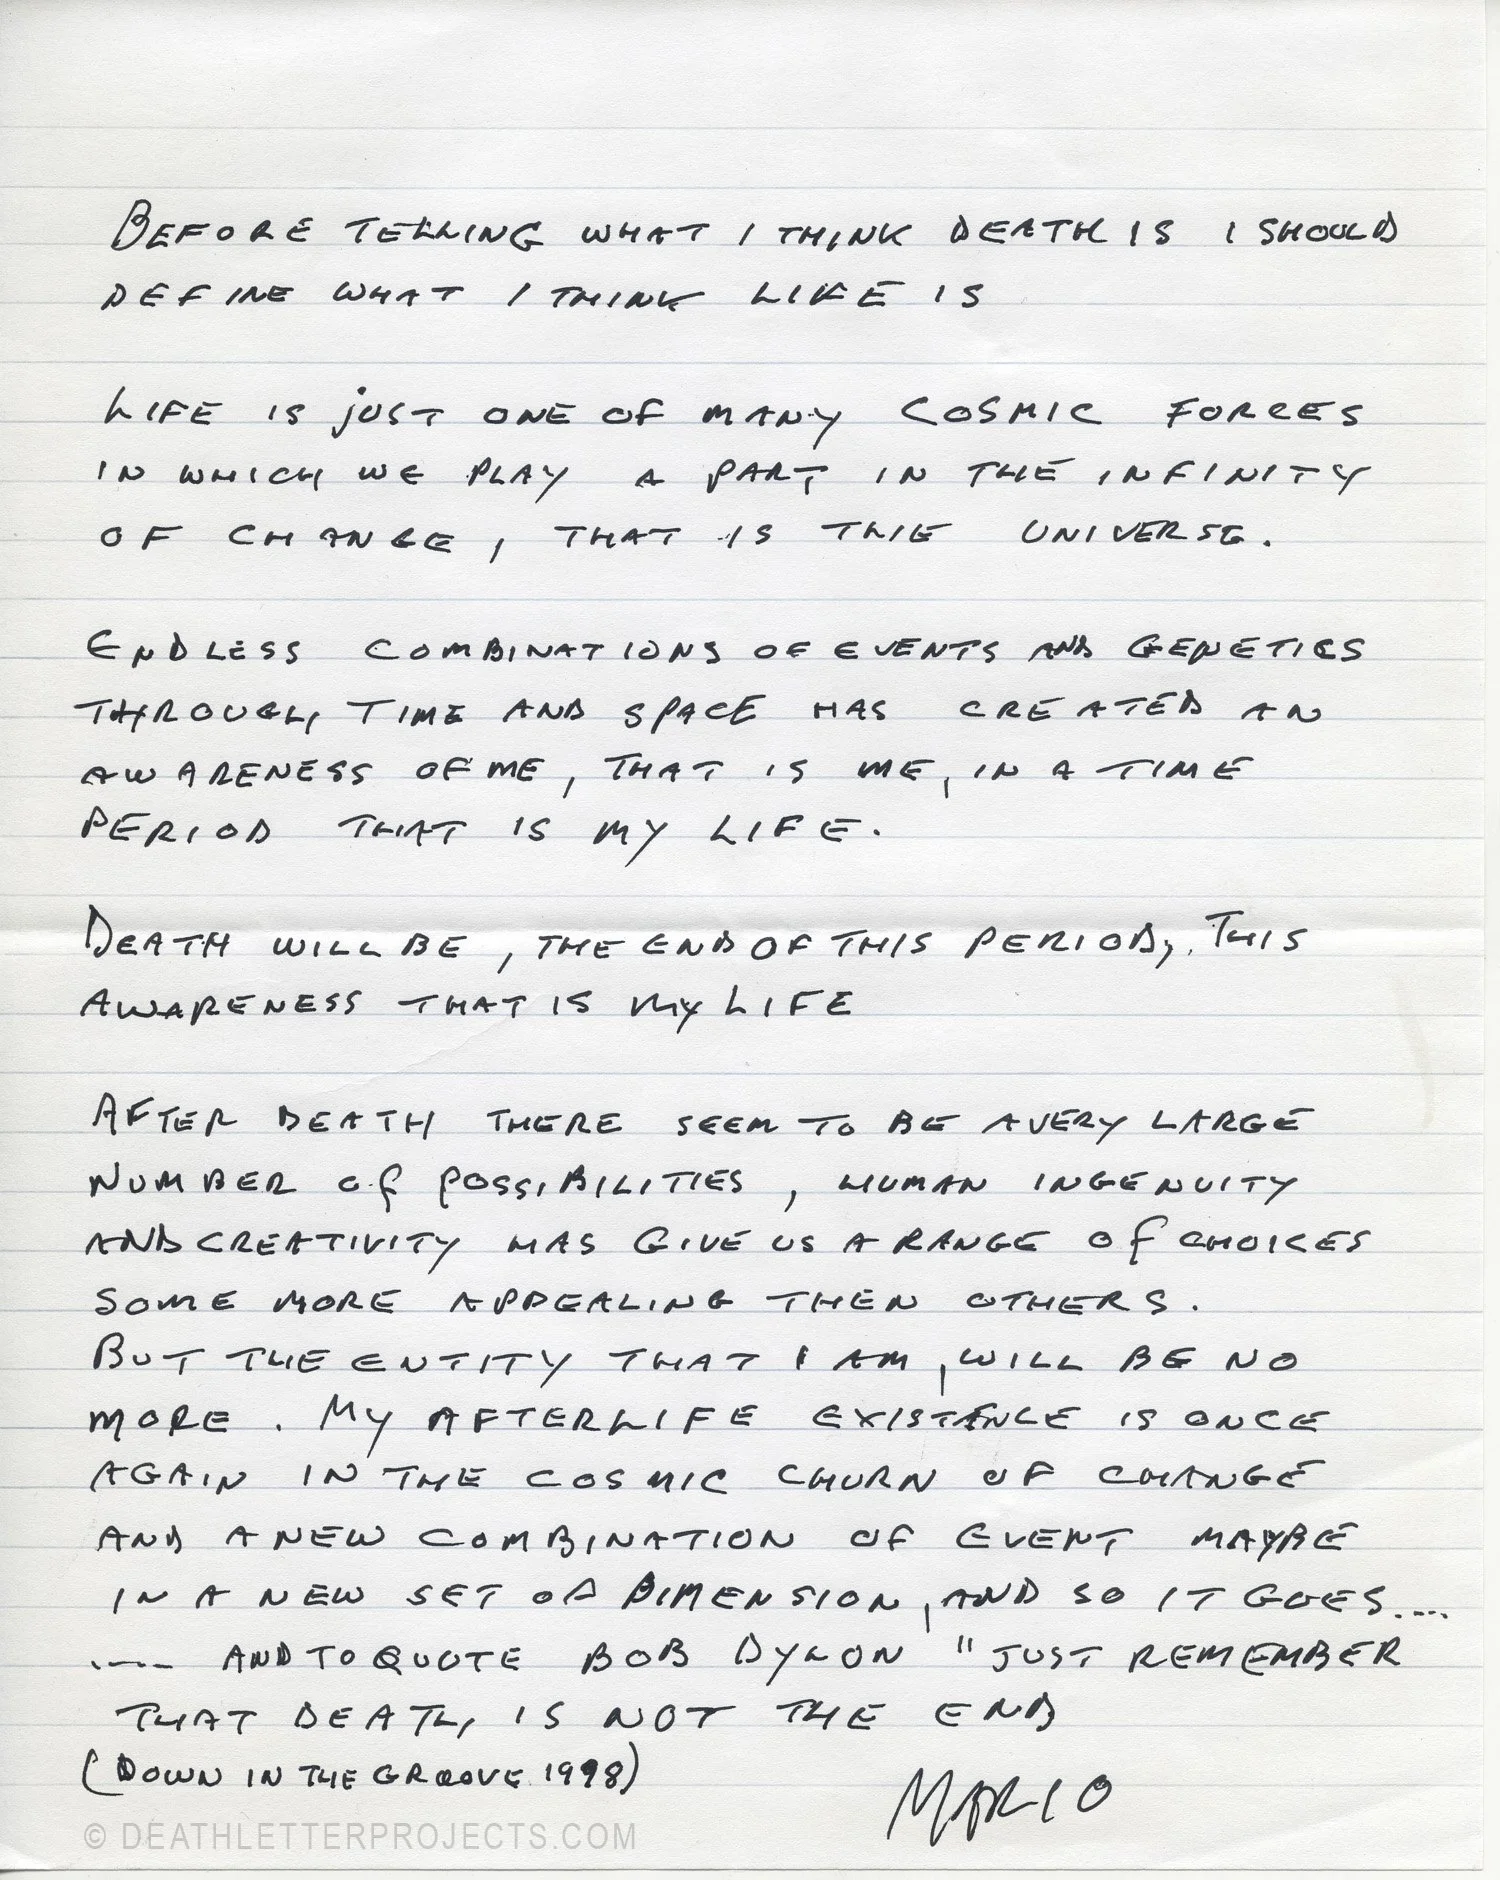 BEFORE TELLING WHAT I THINK DEATH IS I SHOULD
DEFINE WHAT I THINK LIFE IS
LIFE IS JUST ONE OF MANY COSMIC FORCES
IN WHICH WE PLAY A PART IN THE INFINITY
OF CHANGE, THAT IS THE UNIVERSE.
ENDLESS COMBINATIONS OF EVENTS AND GENETICS
THROUGH, TIME AND SPACE HAS CREATED AN
AWARENESS OF ME, THAT IS ME, IN A TIME
PERIOD THAT IS MY LIFE.
DEATH WILL BE, THE END OF THIS PERIOD, THIS
AWARENESS THAT IS MY LIFE
AFTER DEATH THERE SEEM TO BE A VERY LARGE
NUMBER of POSSIBILITIES, HUMAN INGENUITY
AND CREATIVITY HAS GIVE US A RANGE Of CHOICES
SOME MORE APPEALING THEN OTHERS.
BUT THE ENTITY THAT I AM, WILL BE NO
MORE. MY AFTERLIFE EXISTENCE IS ONCE
AGAIN IN THE COSMIC CHURN OF CHANGE
AND A NEW COMBINATION OF EVENT MAYBE
IN A NEW SET OF DIMENSION, AND SO IT GOES.....
..... AND TO QUOTE BOB DYLON "JUST REMEMBER
THAT DEATH, IS NOT THE END
(DOWN IN THE GROOVE 1998)
MARIO
© DEATHLETTERPROJECTS.COM